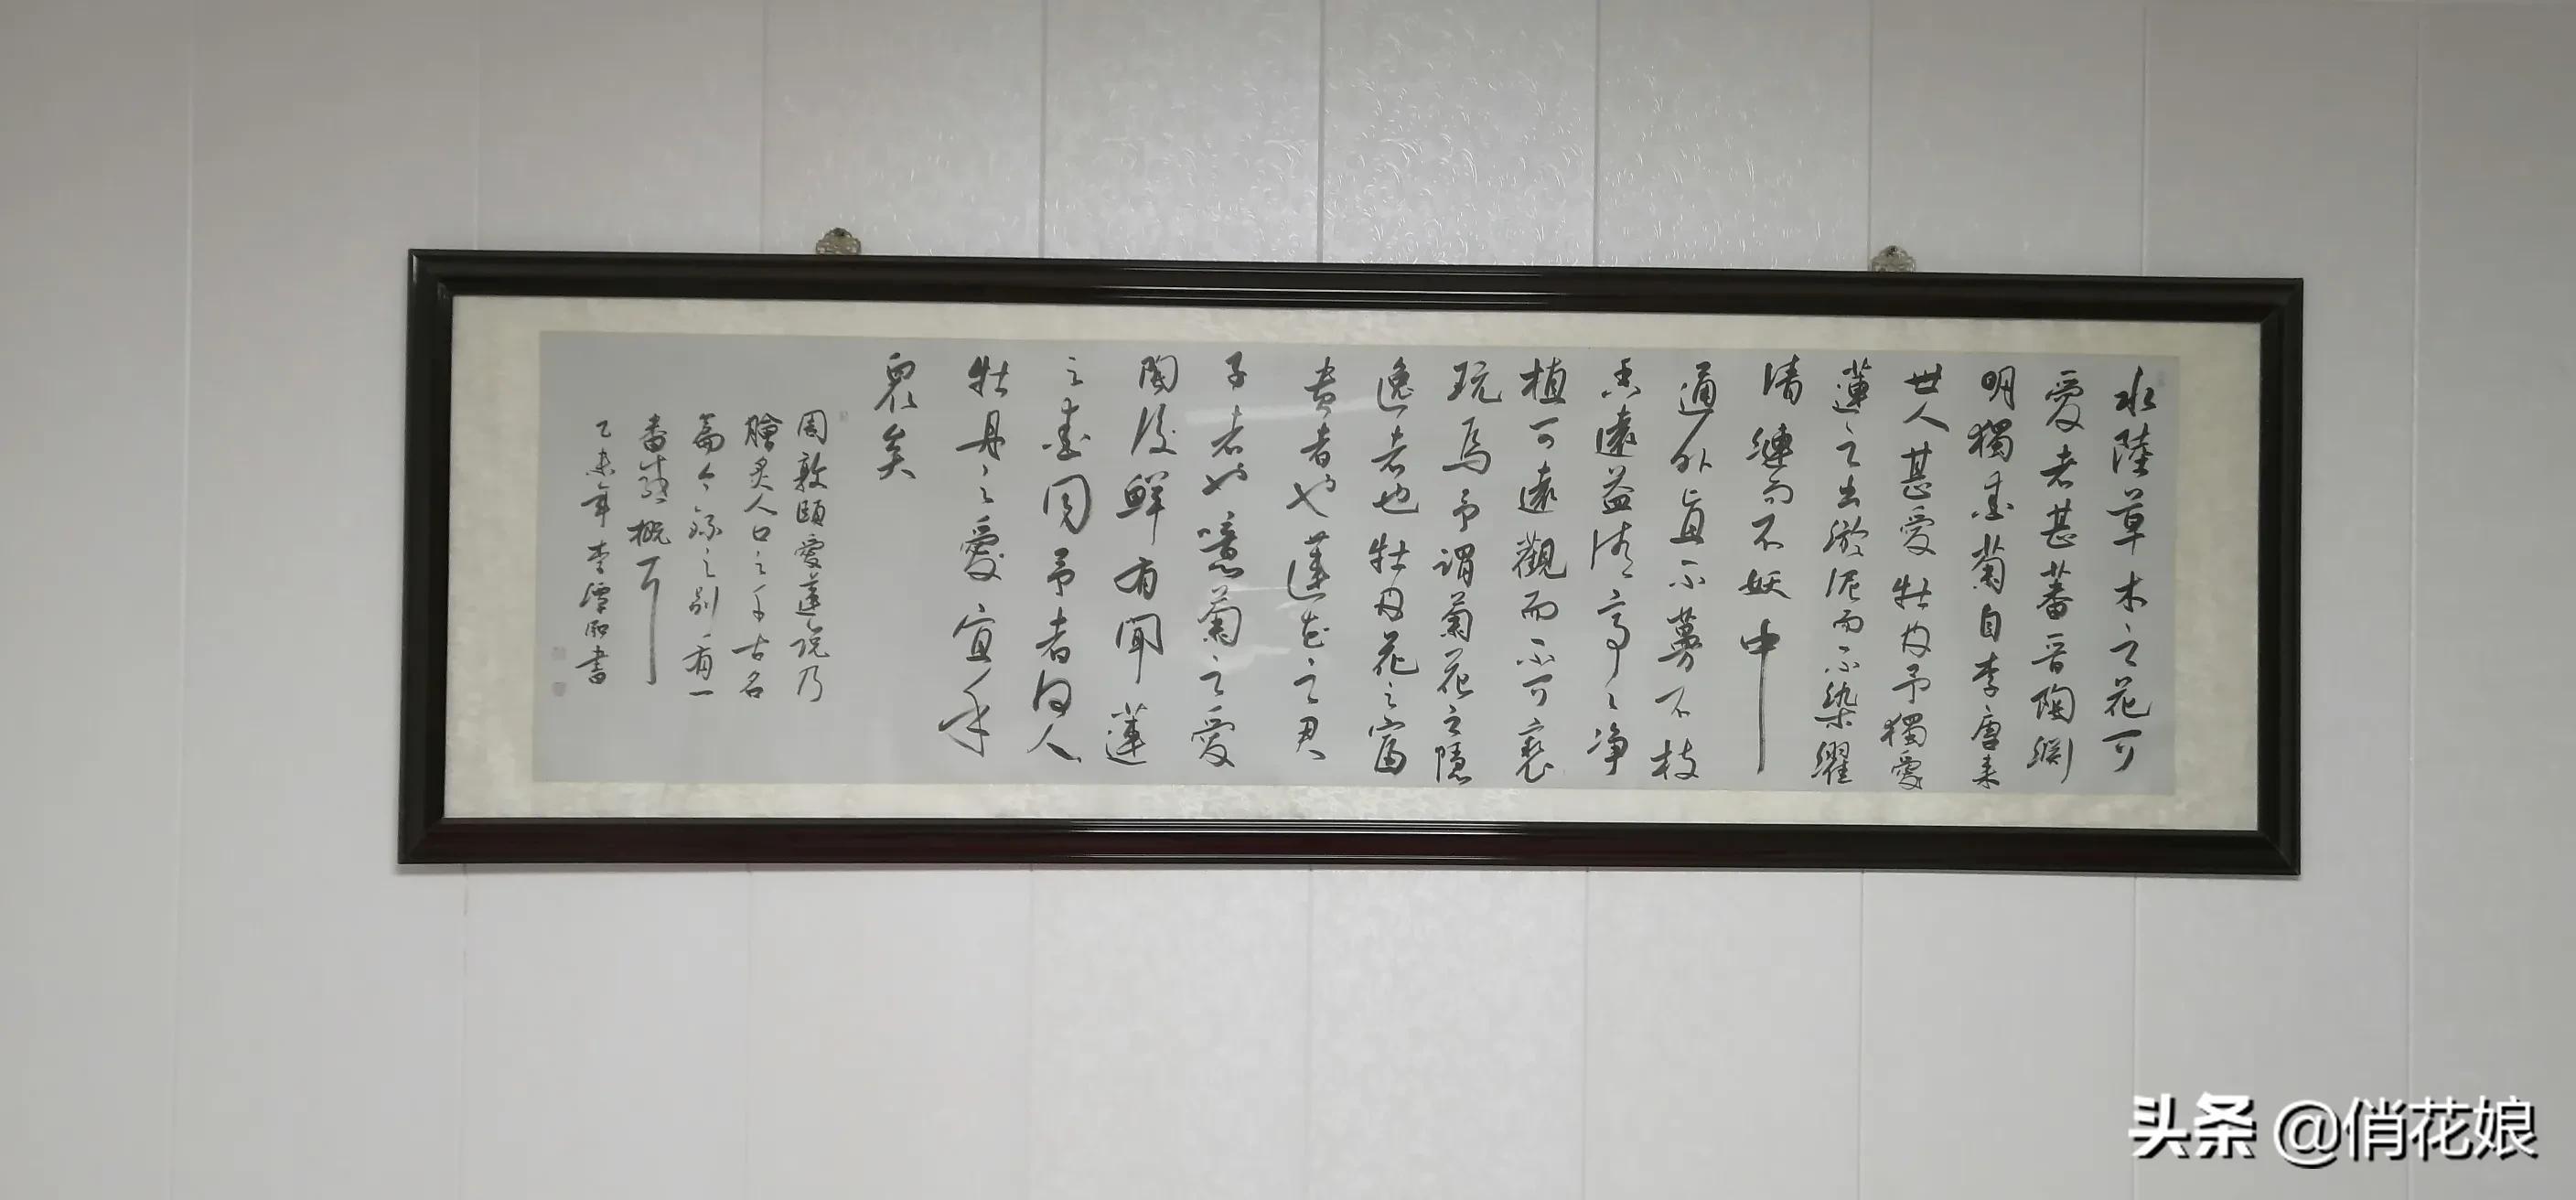 水陸草木之花可
愛者甚蕃晉陶淵
明獨愛菊自李唐来
世人甚愛牡丹予獨愛
蓮之出淤泥而不染濯
清漣而不妖中
通外直不蔓不枝
香遠益清亭亭净
植可遠觀而不可褻
玩焉予謂菊花之隱
逸者也牡丹花之富
貴者也蓮花之君
子者也噫菊之愛
陶後鮮有聞蓮
之愛同予者何人
牡丹之愛宜乎
眾矣
周敦頤愛蓮說乃
膾炙人口之千古名
篇今錄之別有一
番感概耳
乙未年李潭书
头条 @俏花娘